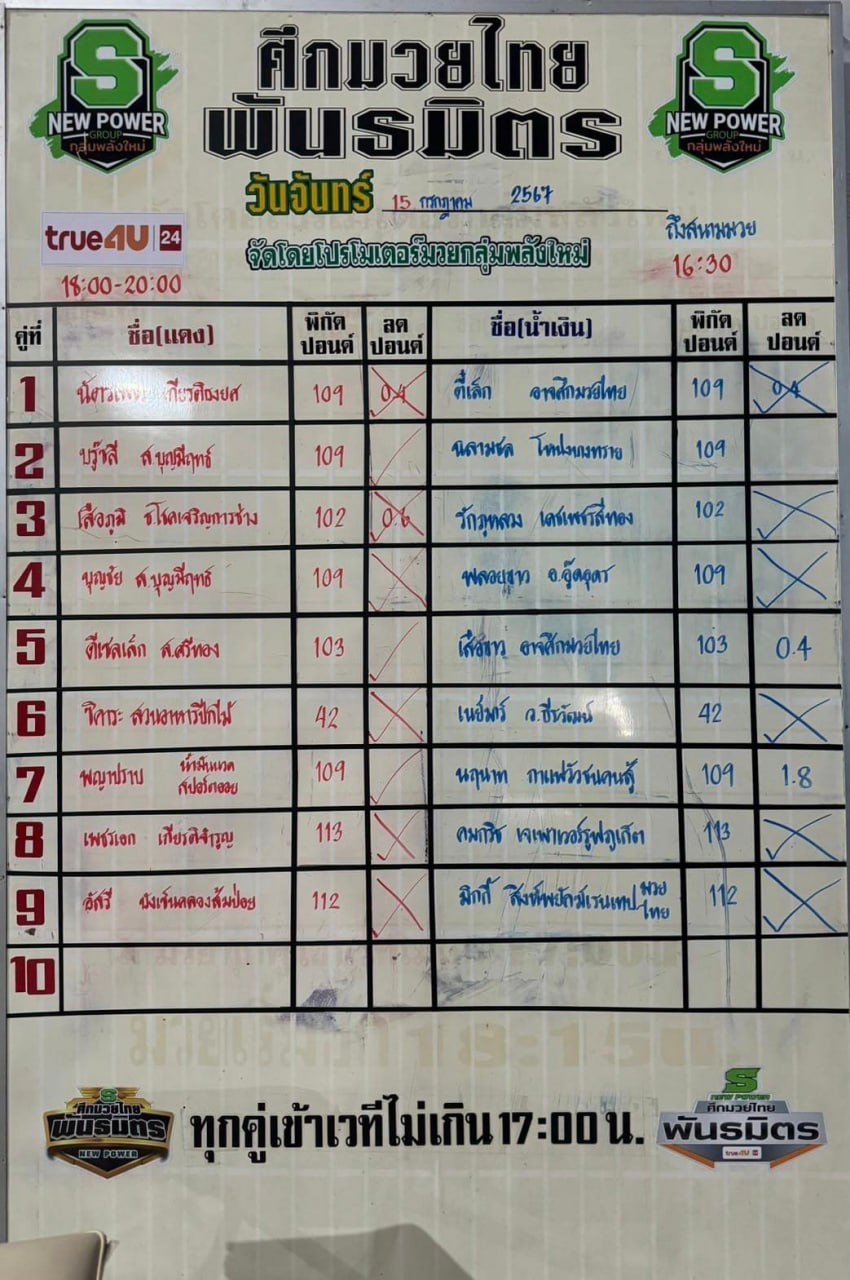 S
NEW POWER
GROUP
กลุ่มพลังใหม่
ศึกมวยไทย
พันธมิตร
S
NEW POWER
GROUP
กลุ่มพลังใหม่
วันจันทร์ 15 กรกฎาคม 2567
true4U 24
18:00-20:00
จัดโดยโปรโมเตอร์มวยกลุ่มพลังใหม่
ถึงสนามมวย
16:30
คู่ที่ ชื่อ(แดง) พิกัดปอนด์ ลดปอนด์ ชื่อ(น้ำเงิน) พิกัดปอนด์ ลดปอนด์
1 เกียรติธงยศ 109 0.4 ตี๋เล็ก อาจศึกมวยไทย 109 0.4
2 บรู๊ซลี ส.บุญมีฤทธิ์ 109 ฉลามชล 109
3 เสือภูมิ ช.โชคเจริญการช่าง 102 0.6 เดชเพชรสีทอง 102
4 บุญชัย ส.บุญมีฤทธิ์ 109 พลอยขาว อ.อู๊ดอุดร 109
5 ดีเซลเล็ก ส.ศรีทอง 103 เสือขาว อาจศึกมวยไทย 103 0.4
6 ชิคาระ สวนอาหารปีกไม้ 42 เนย์มาร์ ว.ธีรวัฒน์ 42
7 พญาปราบ น้ำมันนวดสปอร์ตออย 109 นฤนาท กาแฟวัวชนคนสู้ 109 1.8
8 เพชรเอก เกียรติจำรูญ 113 คมกริช เจเพาเวอร์รูฟภูเก็ต 113
9 อัสรี บังเซ็นคลองส้มป่อย 112 มิกกี้ สิงห์พยัคฆ์เรนเทปมวยไทย 112
10
S
ศึกมวยไทย
พันธมิตร
NEW POWER
ทุกคู่เข้าเวทีไม่เกิน 17:00 น.
S
NEW POWER
ศึกมวยไทย
พันธมิตร
true4U